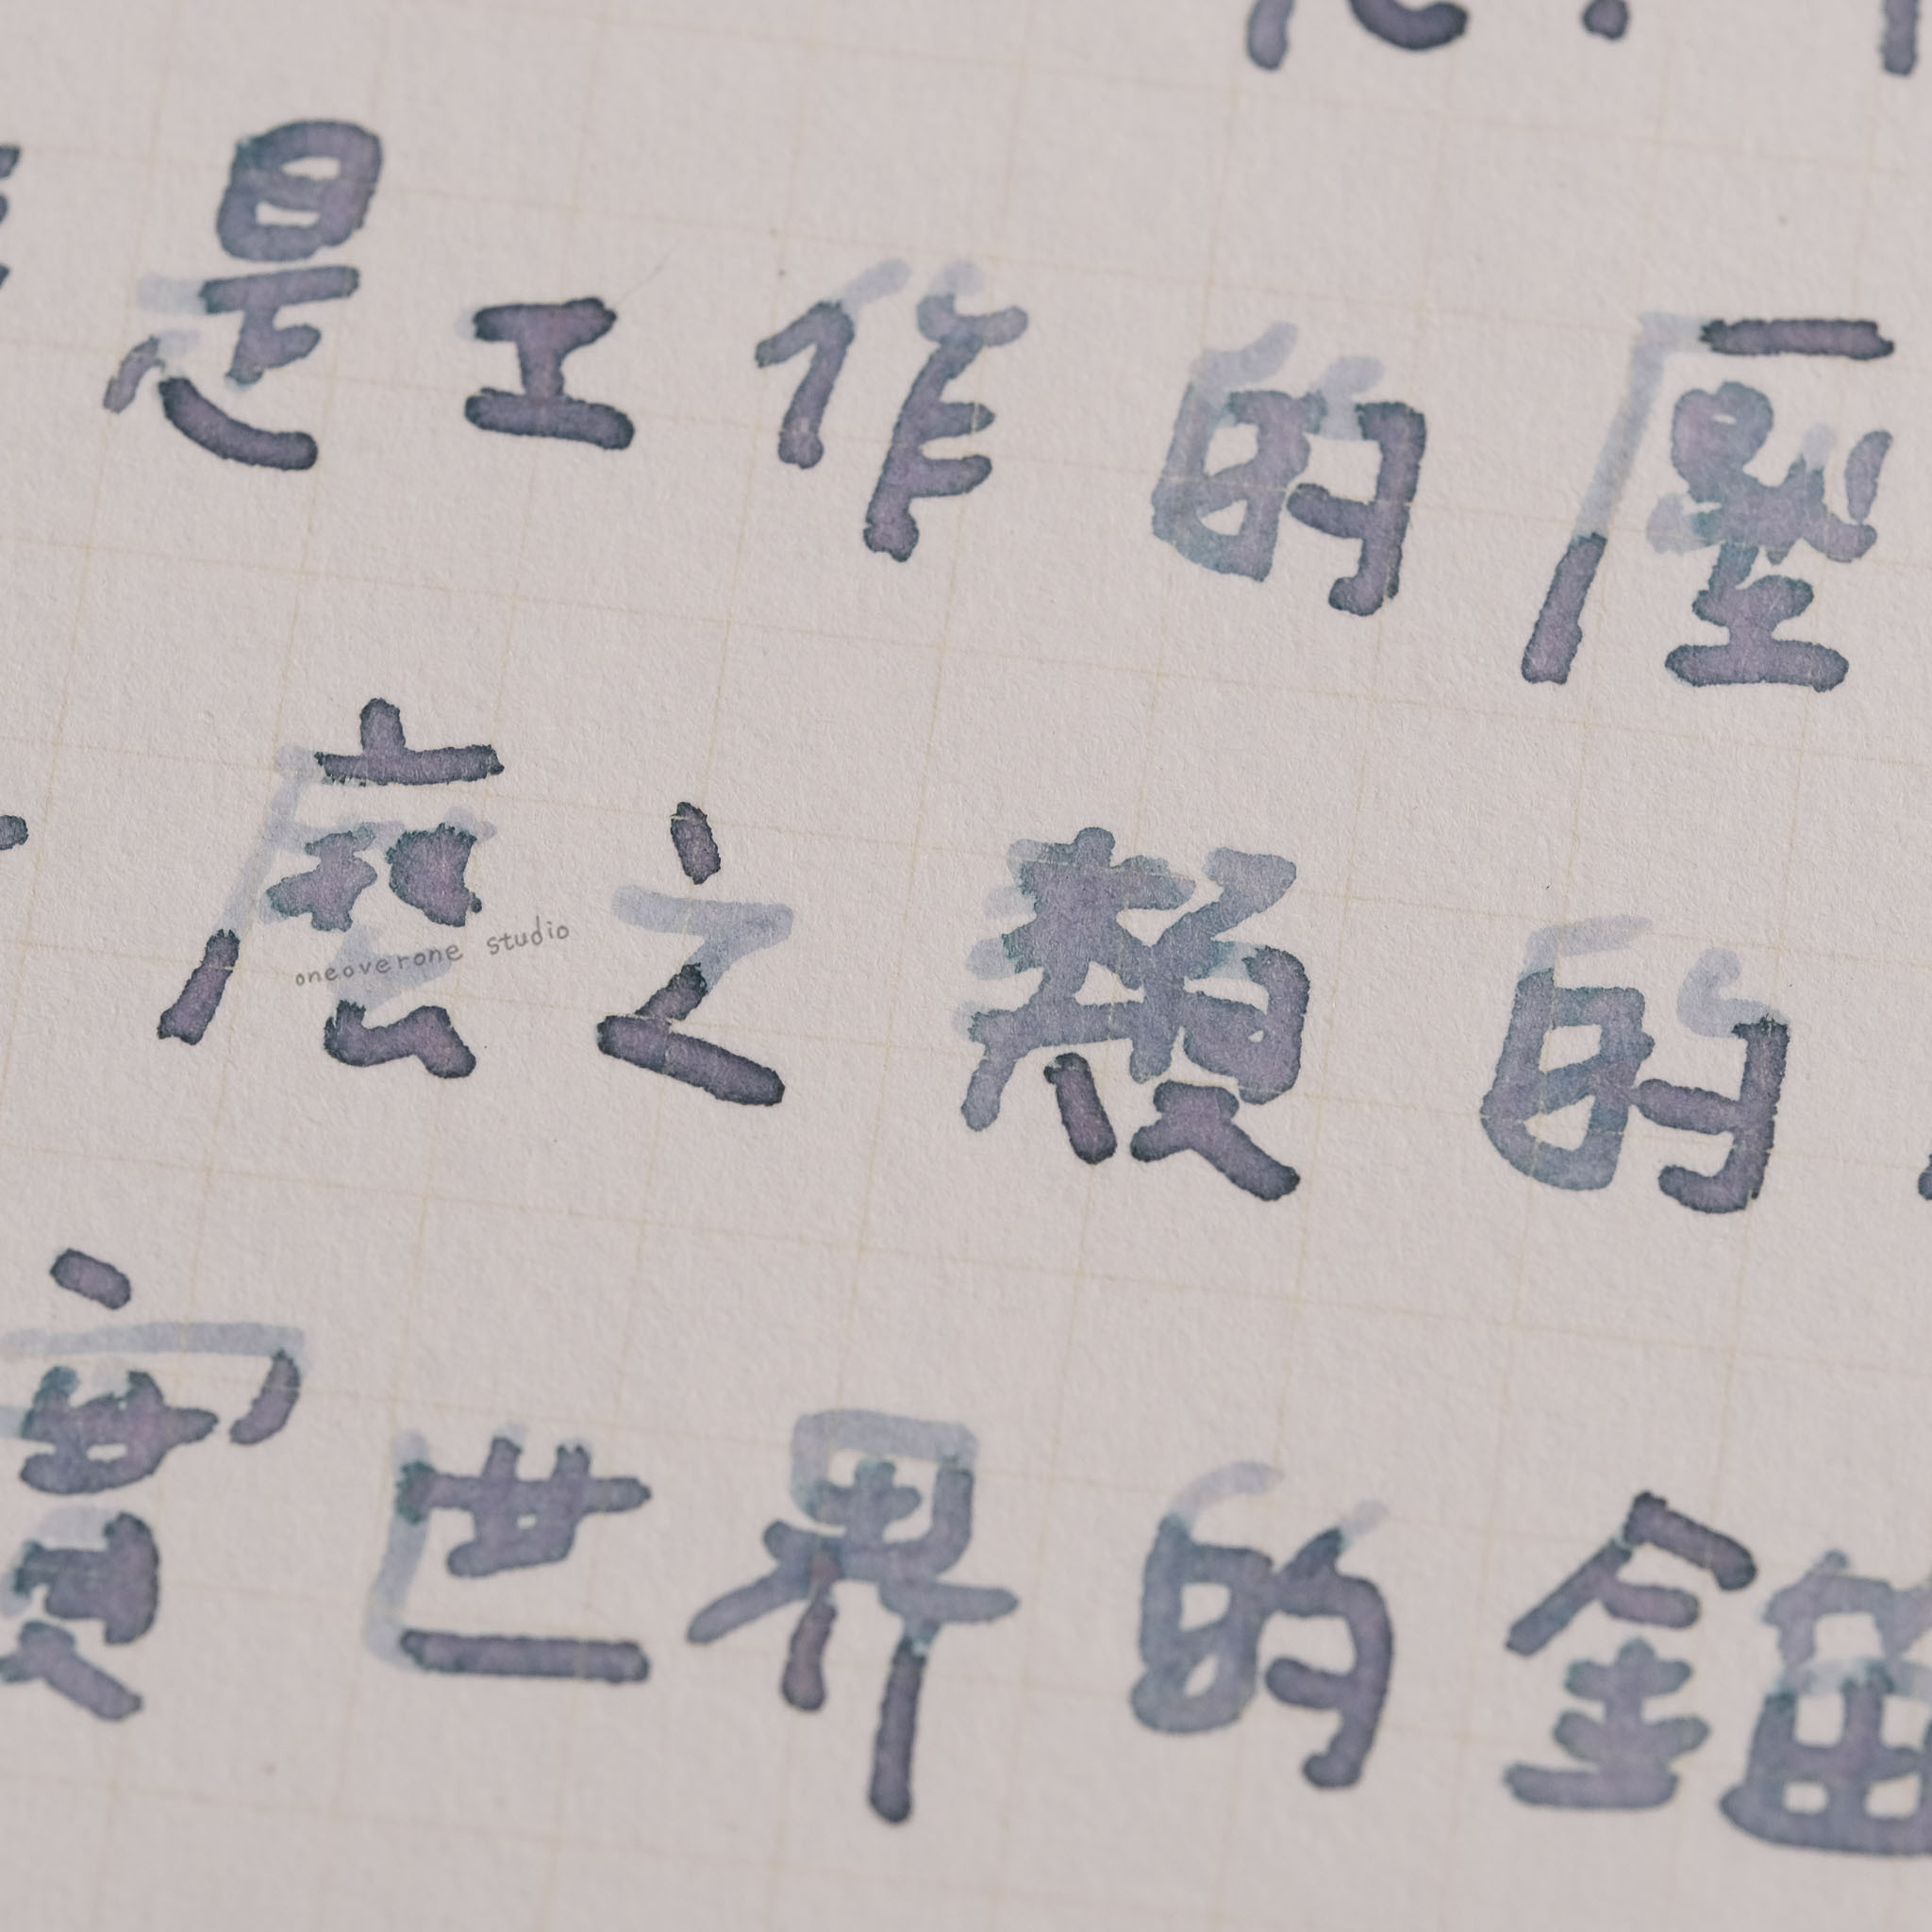 是工作的壓
麼之類的
實世界的錨
oneoverone studio